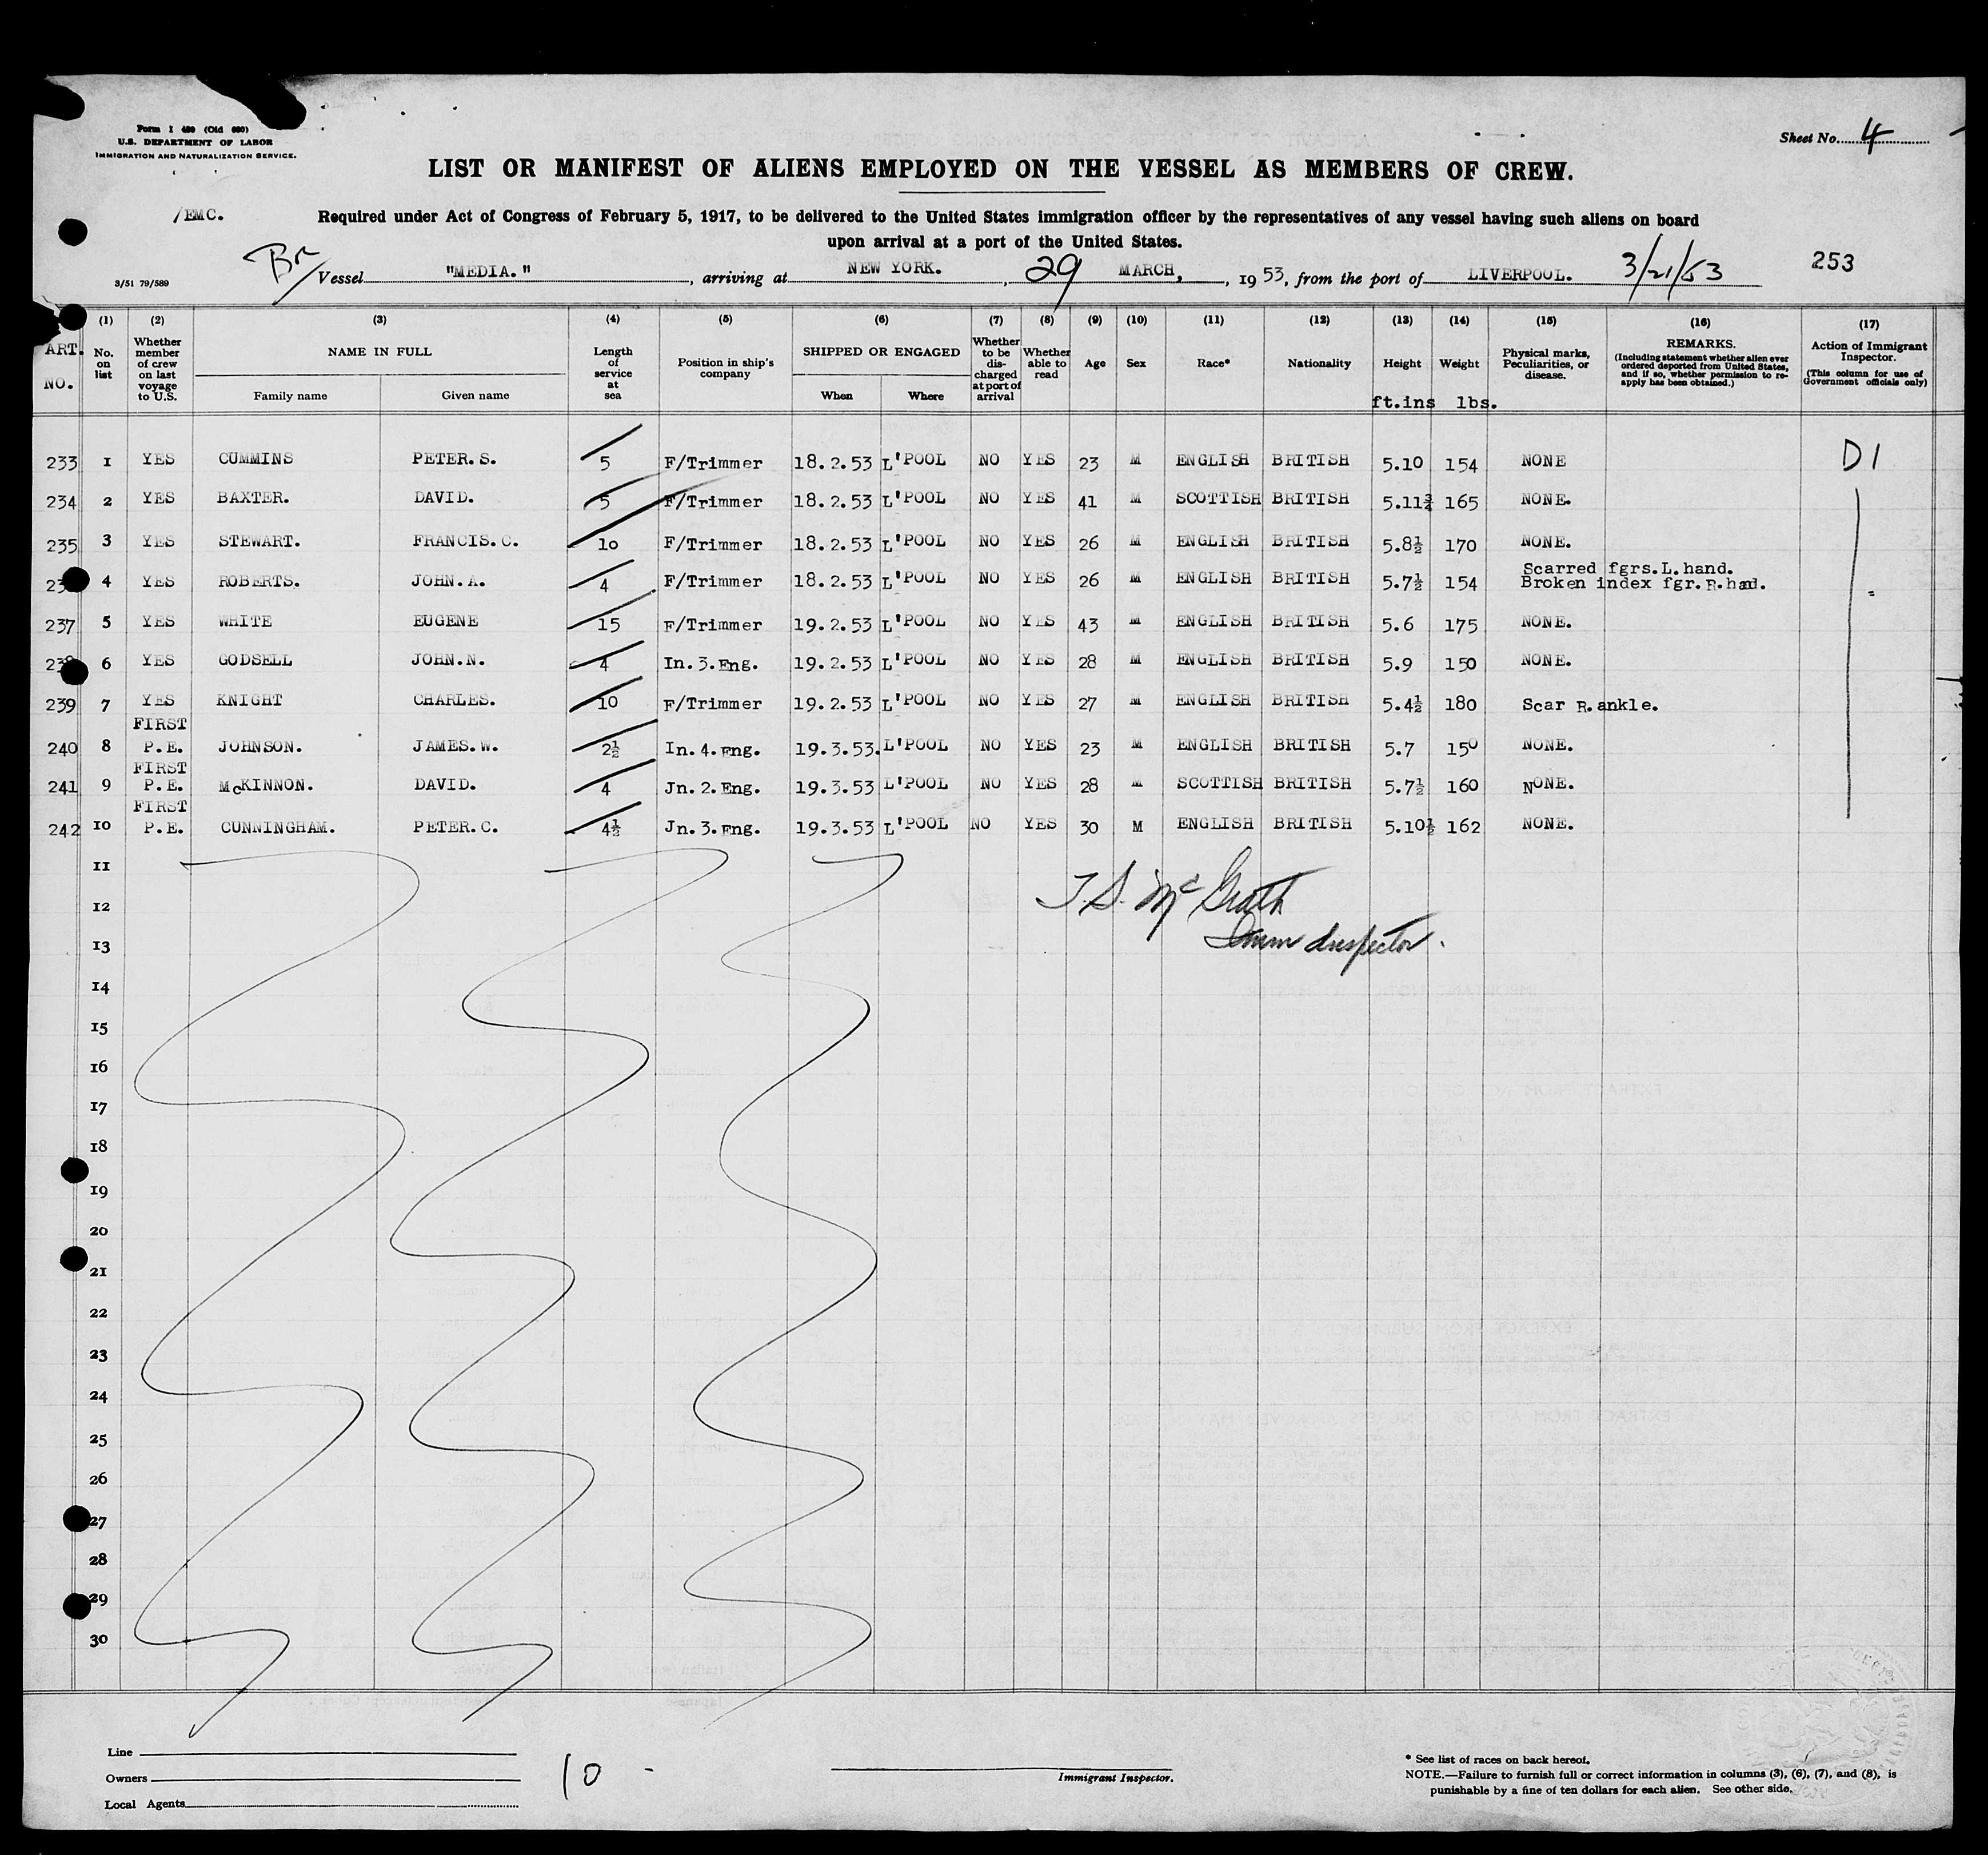 Form I 480 (Old 680)
U.S. DEPARTMENT OF LABOR
IMMIGRATION AND NATURALIZATION SERVICE.
Sheet No. 4
LIST OR MANIFEST OF ALIENS EMPLOYED ON THE VESSEL AS MEMBERS OF CREW.
/EMC.
Required under Act of Congress of February 5, 1917, to be delivered to the United States immigration officer by the representatives of any vessel having such aliens on board
upon arrival at a port of the United States.
Br
3/51 79/589
Vessel "MEDIA." , arriving at NEW YORK. , 29 MARCH, , 1953, from the port of LIVERPOOL. 3/21/53 253
ART. NO.
(1) No. on list
(2) Whether member of crew on last voyage to U.S.
(3) NAME IN FULL Family name Given name
(4) Length of service at sea
(5) Position in ship's company
(6) SHIPPED OR ENGAGED When Where
(7) Whether to be discharged at port of arrival
(8) Whether able to read
(9) Age
(10) Sex
(11) Race*
(12) Nationality
(13) Height ft.ins
(14) Weight lbs.
(15) Physical marks, Peculiarities, or disease.
(16) REMARKS. (Including statement whether alien ever ordered deported from United States, and if so, whether permission to re-apply has been obtained.)
(17) Action of Immigrant Inspector. (This column for use of Government officials only)
233 1 YES CUMMINS PETER.S. 5 F/Trimmer 18.2.53 L'POOL NO YES 23 M ENGLISH BRITISH 5.10 154 NONE D1
234 2 YES BAXTER. DAVID. 5 F/Trimmer 18.2.53 L'POOL NO YES 41 M SCOTTISH BRITISH 5.11¾ 165 NONE.
235 3 YES STEWART. FRANCIS.C. 10 F/Trimmer 18.2.53 L'POOL NO YES 26 M ENGLISH BRITISH 5.8½ 170 NONE.
23 4 YES ROBERTS. JOHN.A. 4 F/Trimmer 18.2.53 L'POOL NO YES 26 M ENGLISH BRITISH 5.7½ 154 Scarred fgrs.L.hand.
Broken index fgr.R.had.
237 5 YES WHITE EUGENE 15 F/Trimmer 19.2.53 L'POOL NO YES 43 M ENGLISH BRITISH 5.6 175 NONE.
238 6 YES GODSELL JOHN.N. 4 In.3.Eng. 19.2.53 L'POOL NO YES 28 M ENGLISH BRITISH 5.9 150 NONE.
239 7 YES KNIGHT CHARLES. 10 F/Trimmer 19.2.53 L'POOL NO YES 27 M ENGLISH BRITISH 5.4½ 180 Scar R.ankle.
FIRST
240 8 P.E. JOHNSON. JAMES.W. 2½ In.4.Eng. 19.3.53. L'POOL NO YES 23 M ENGLISH BRITISH 5.7 150 NONE.
FIRST
241 9 P.E. McKINNON. DAVID. 4 Jn.2.Eng. 19.3.53 L'POOL NO YES 28 M SCOTTISH BRITISH 5.7½ 160 NONE.
FIRST
242 10 P.E. CUNNINGHAM. PETER.C. 4½ Jn.3.Eng. 19.3.53 L'POOL NO YES 30 M ENGLISH BRITISH 5.10½ 162 NONE.
11
12 T.S. McGrath
13 Imm Inspector.
14
15
16
17
18
19
20
21
22
23
24
25
26
27
28
29
30
Line
Owners
Local Agents
10 -
Immigrant Inspector.
* See list of races on back hereof.
NOTE.—Failure to furnish full or correct information in columns (3), (6), (7), and (8), is
punishable by a fine of ten dollars for each alien. See other side.